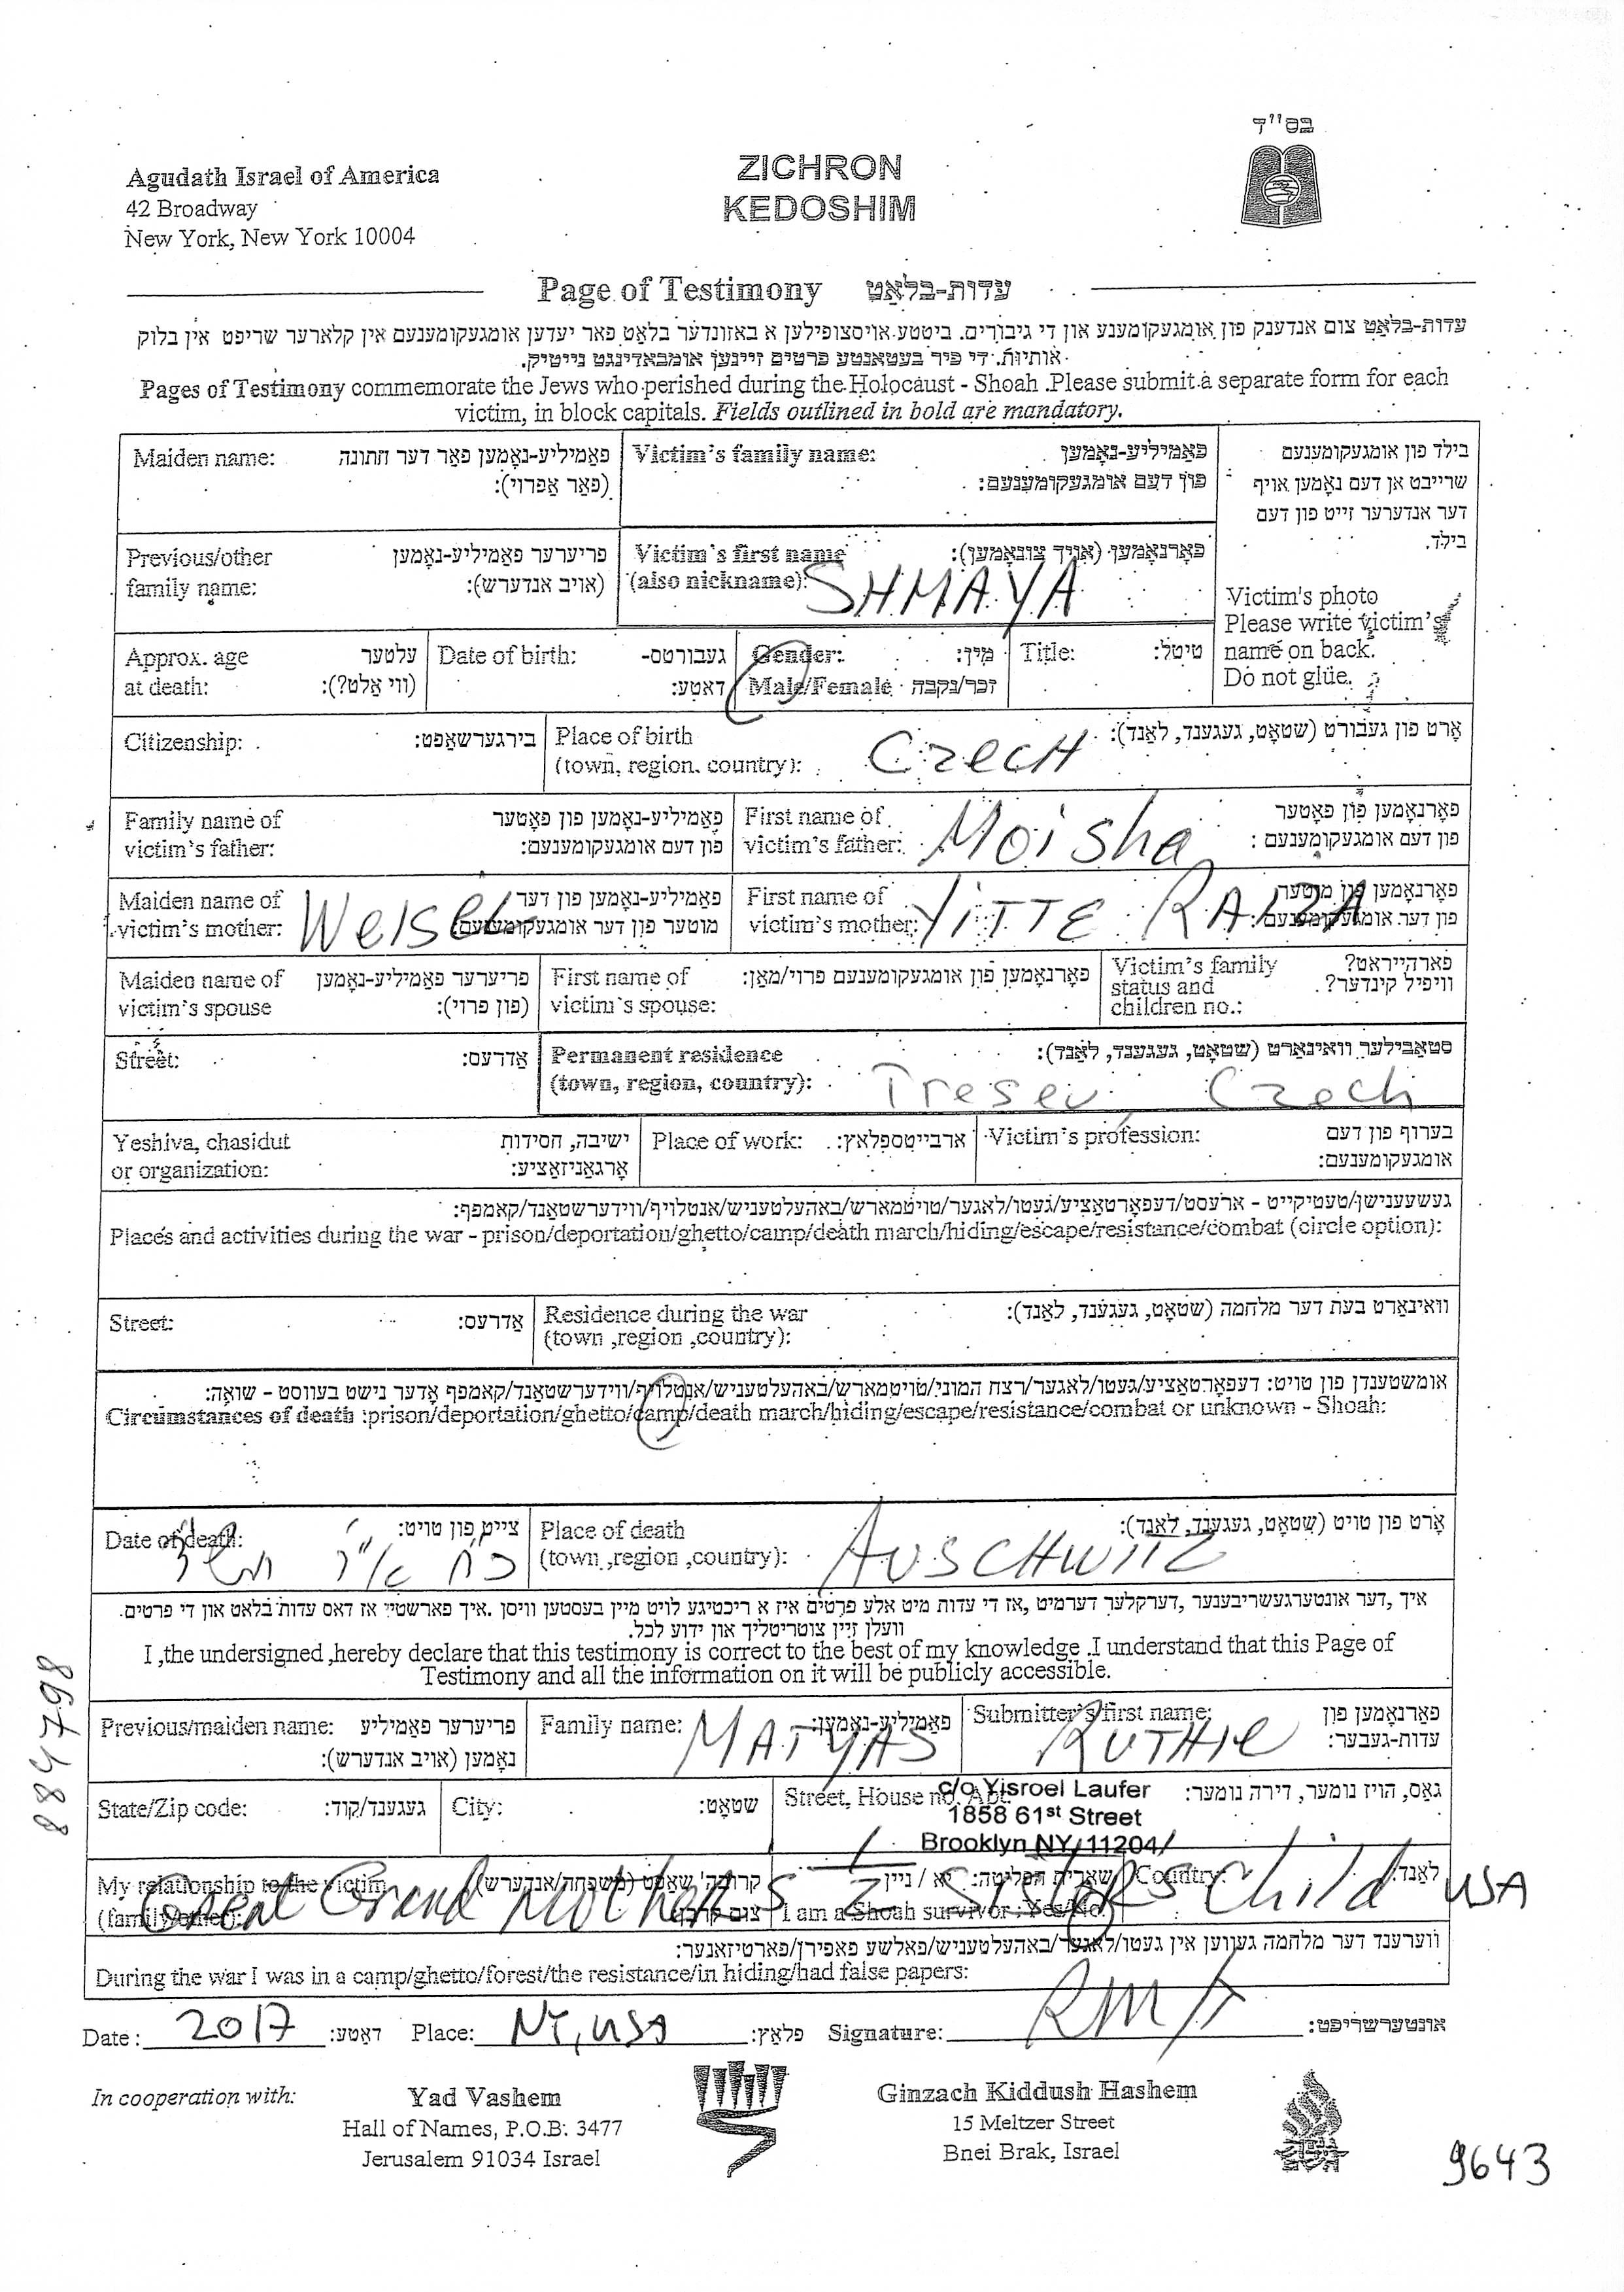 בס"ד
Agudath Israel of America
42 Broadway
New York, New York 10004
ZICHRON
KEDOSHIM
Page of Testimony עדות-בלאַט
עדות-בלאַט צום אנדענק פון אומגעקומענע און די גיבורים. ביטע אויסצופילען א באזונדער בלאט פאר יעדען אומגעקומענעם אין קלארער שריפט אין בלוק
אותיות. די פיר בעטאנטע פרטים זיינען אומבאדינגט נייטיק.
Pages of Testimony commemorate the Jews who perished during the Holocaust - Shoah .Please submit a separate form for each
victim, in block capitals. Fields outlined in bold are mandatory.
Maiden name: פאַמיליע-נאָמען פאר דער חתונה
(פאר אפרוי):
Victim's family name: פאַמיליע-נאָמען
פון דעם אומגעקומענעם:
בילד פון אומגעקומענעם
שרייבט אן דעם נאָמען אויף
דער אנדערער זייט פון דעם
בילד.
Victim's photo
Please write victim's
name on back.
Do not glue.
Previous/other פריערער פאַמיליע-נאָמען
family name: (אויב אנדערש):
Victim's first name פאָרנאָמען (אויך צונאָמען):
(also nickname): SHMAYA
Approx. age עלטער
at death: (ווי אַלט?):
Date of birth: געבורטס-
דאַטע:
Gender: מין:
Male/Female זכר/נקבה
Title: טיטל:
Citizenship: בירגערשאַפט:
Place of birth אָרט פון געבורט (שטאָט, געגענד, לאַנד):
(town, region, country): CzecH
Family name of פאַמיליע-נאָמען פון פאָטער
victim's father: פון דעם אומגעקומענעם:
First name of פאָרנאָמען פון פאָטער
victim's father: Moisha פון דעם אומגעקומענעם :
Maiden name of פאַמיליע-נאָמען פון דער
victim's mother: Weisel מוטער פון דער אומגעקומענעם:
First name of פאָרנאָמען פון מוטער
victim's mother: YITTE RAIZA פון דער אומגעקומענעם:
Maiden name of פריערער פאַמיליע-נאָמען
victim's spouse (פון פרוי):
First name of פאָרנאָמען פון אומגעקומענעם פרוי/מאַן:
victim's spouse:
Victim's family פארהייראט?
status and וויפיל קינדער?
children no.:
Street: אַדרעס:
Permanent residence סטאַבילער וואוינאָרט (שטאָט, געגענד, לאַנד):
(town, region, country): Tresev Czech
Yeshiva, chasidut ישיבה, חסידות
or organization: אָרגאַניזאַציע:
Place of work: ארבייטספלאץ:
Victim's profession: בערוף פון דעם
אומגעקומענעם:
געשעענישן/טעטיקייט - ארעסט/דעפּאָרטאַציע/געטו/לאגער/טויטמארש/באהעלטעניש/אנטלויף/ווידערשטאַנד/קאמפף:
Places and activities during the war - prison/deportation/ghetto/camp/death march/hiding/escape/resistance/combat (circle option):
Street: אַדרעס:
Residence during the war וואוינאָרט בעת דער מלחמה (שטאָט, געגענד, לאַנד):
(town ,region ,country):
אומשטענדן פון טויט: דעפּאָרטאַציע/געטו/לאגער/רצח המוני/טויטמארש/באהעלטעניש/אנטלויף/ווידערשטאַנד/קאמפף אָדער נישט בעוואוסט - שואה:
Circumstances of death :prison/deportation/ghetto/camp/death march/hiding/escape/resistance/combat or unknown - Shoah:
Date of death: צייט פון טויט:
Place of death אָרט פון טויט (שטאָט, געגענד, לאַנד):
(town ,region ,country): AUSCHWITZ
איך ,דער אונטערגעשריבענער ,דערקלער דערמיט ,אז די עדות מיט אלע פרטים איז א ריכטיגע לויט מיין בעסטען וויסן .איך פארשטיי אז דאס עדות בלאט און די פרטים
וועלן זיין צוטריטליך און ידוע לכל.
I ,the undersigned ,hereby declare that this testimony is correct to the best of my knowledge .I understand that this Page of
Testimony and all the information on it will be publicly accessible.
Previous/maiden name: פריערער פאַמיליע
נאָמען (אויב אנדערש):
Family name: MATYAS פאַמיליע-נאָמען:
Submitter's first name: RUTHIE פאָרנאָמען פון
עדות-געבער:
State/Zip code: געגענד/קוד:
City: שטאָט:
Street, House no. Apt גאַס, הויז נומער, דירה נומער:
c/o Yisroel Laufer
1858 61st Street
Brooklyn NY 11204
My relationship to the victim
Great Grand Mother's Sister's Child
I am a Shoah survivor : Yes/No. שארית הפליטה: יא / ניין
Country: לאַנד: USA
ווערענד דער מלחמה געווען אין געטו/לאגער/באהעלטעניש/פאלשע פאפירן/פארטיזאנער:
During the war I was in a camp/ghetto/forest/the resistance/in hiding/had false papers:
Date : 2017 דאַטע: Place: NY, USA פלאַץ: Signature: אונטערשריפט:
In cooperation with:
Yad Vashem
Hall of Names, P.O.B. 3477
Jerusalem 91034 Israel
Ginzach Kiddush Hashem
15 Meltzer Street
Bnei Brak, Israel
9643
8847 98